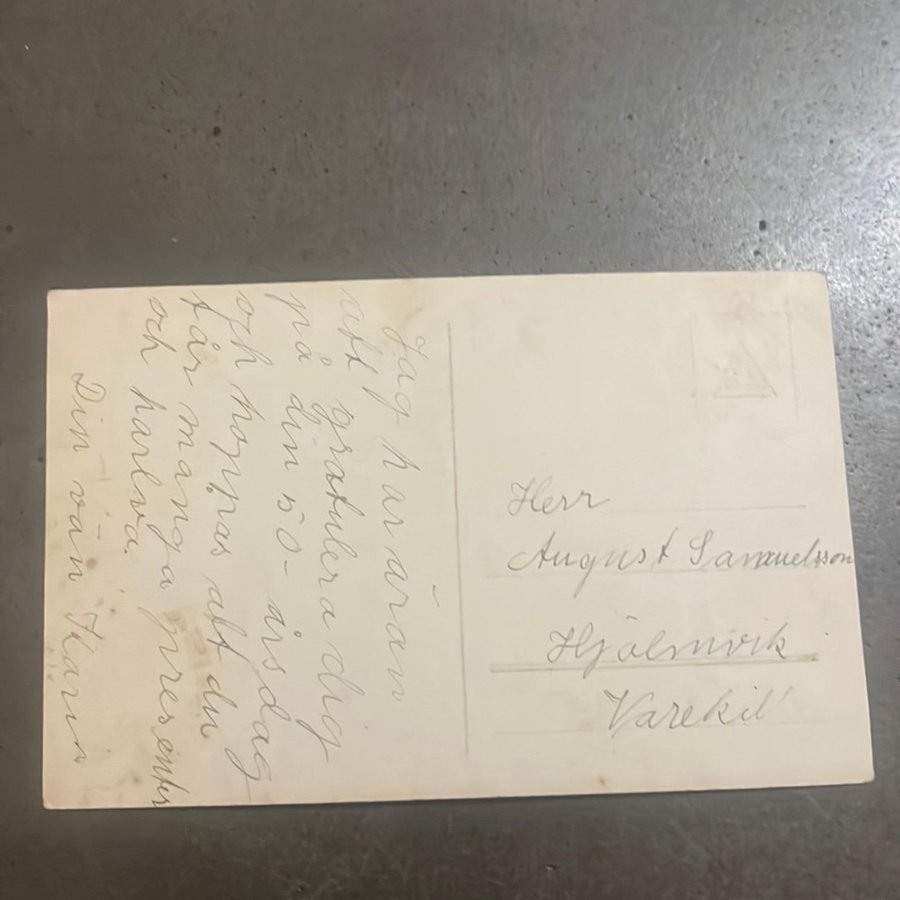 Jag har äran
att gratulera dig
på din 50-årsdag
och hoppas att du
får många presenter
och harlva.
Din vän Karin
Herr
August Samuelsson
Hjälmvik
Varekil